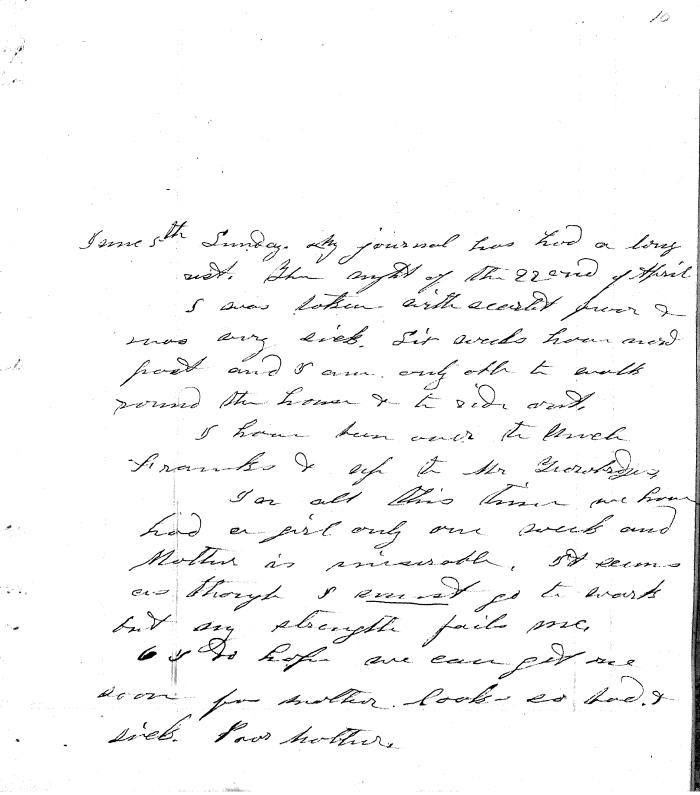 10
June 5th Sunday. My journal has had a long
rest. The night of the 22end of April
I was taken with scarlet fever &
was very sick. Six weeks have now
past and I am only able to walk
round the house & to ride out.
I have been over to Uncle
Franks & up to Mr
For all this time we have
had a girl only one week and
Mother is miserable. It seems
as though I must go to work
but my strength fails me.
O I do hope we can get one
soon for mother looks so bad &
sick. Poor Mother.